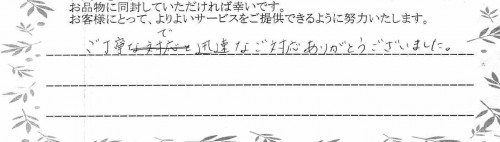 お品物に同封していただければ幸いです。
お客様にとって、よりよいサービスをご提供できるように努力いたします。
ご丁寧で迅速なご対応ありがとうございました。